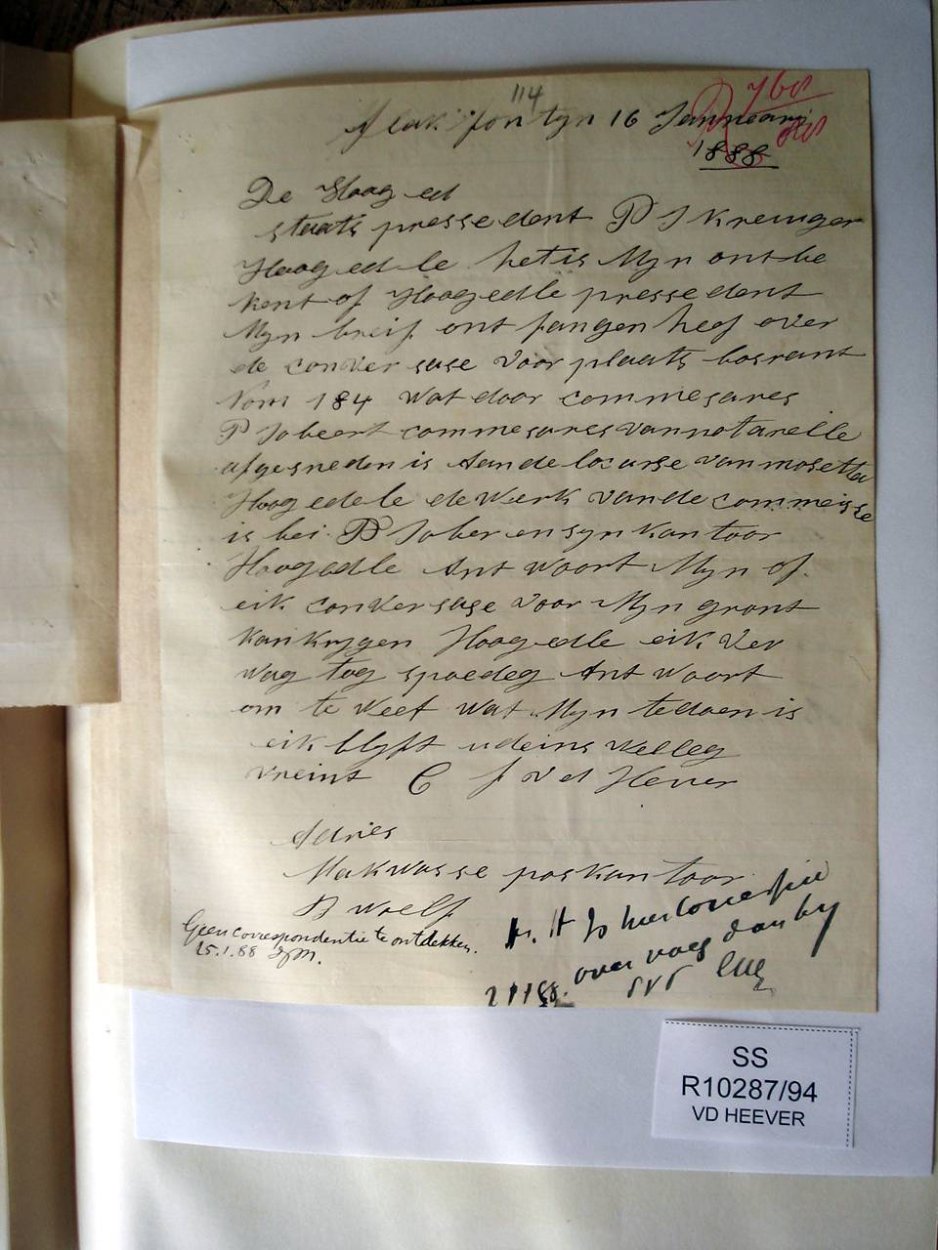 114
Flak fontyn 16 Jannuari
R 768/88
1888
De Hoog ed
staats pressedent P J Kreuger
Hoog ed le hetis Myn ontbe
kent of Hoogedle pressedent
Myn breif ontfangen heef over
de conser sase voor plaats bosrant
Nom 184 wat door commesares
P Jobeert commesares van notarelle
afgesneden is Aan de locasse van mosetta
Hoog edele de Werk van de commeisse
is bei P Jober en syn kantoor
Hoogedle Ant woort Myn of
eik conser sase voor Myn gront
kan krygen Hoog edle eik ver
wag tog spoedeg Ant woort
om te weet wat Myn te doen is
eik blyft u deins welleg
vreint C J v d Hever
Adries
Makwasse poskantoor
D woelf
Geen correspondentie te ontdekken.
25.1.88
Is hier correspdie
over voeg dan by
21 1 88. SVS
SS
R10287/94
VD HEEVER